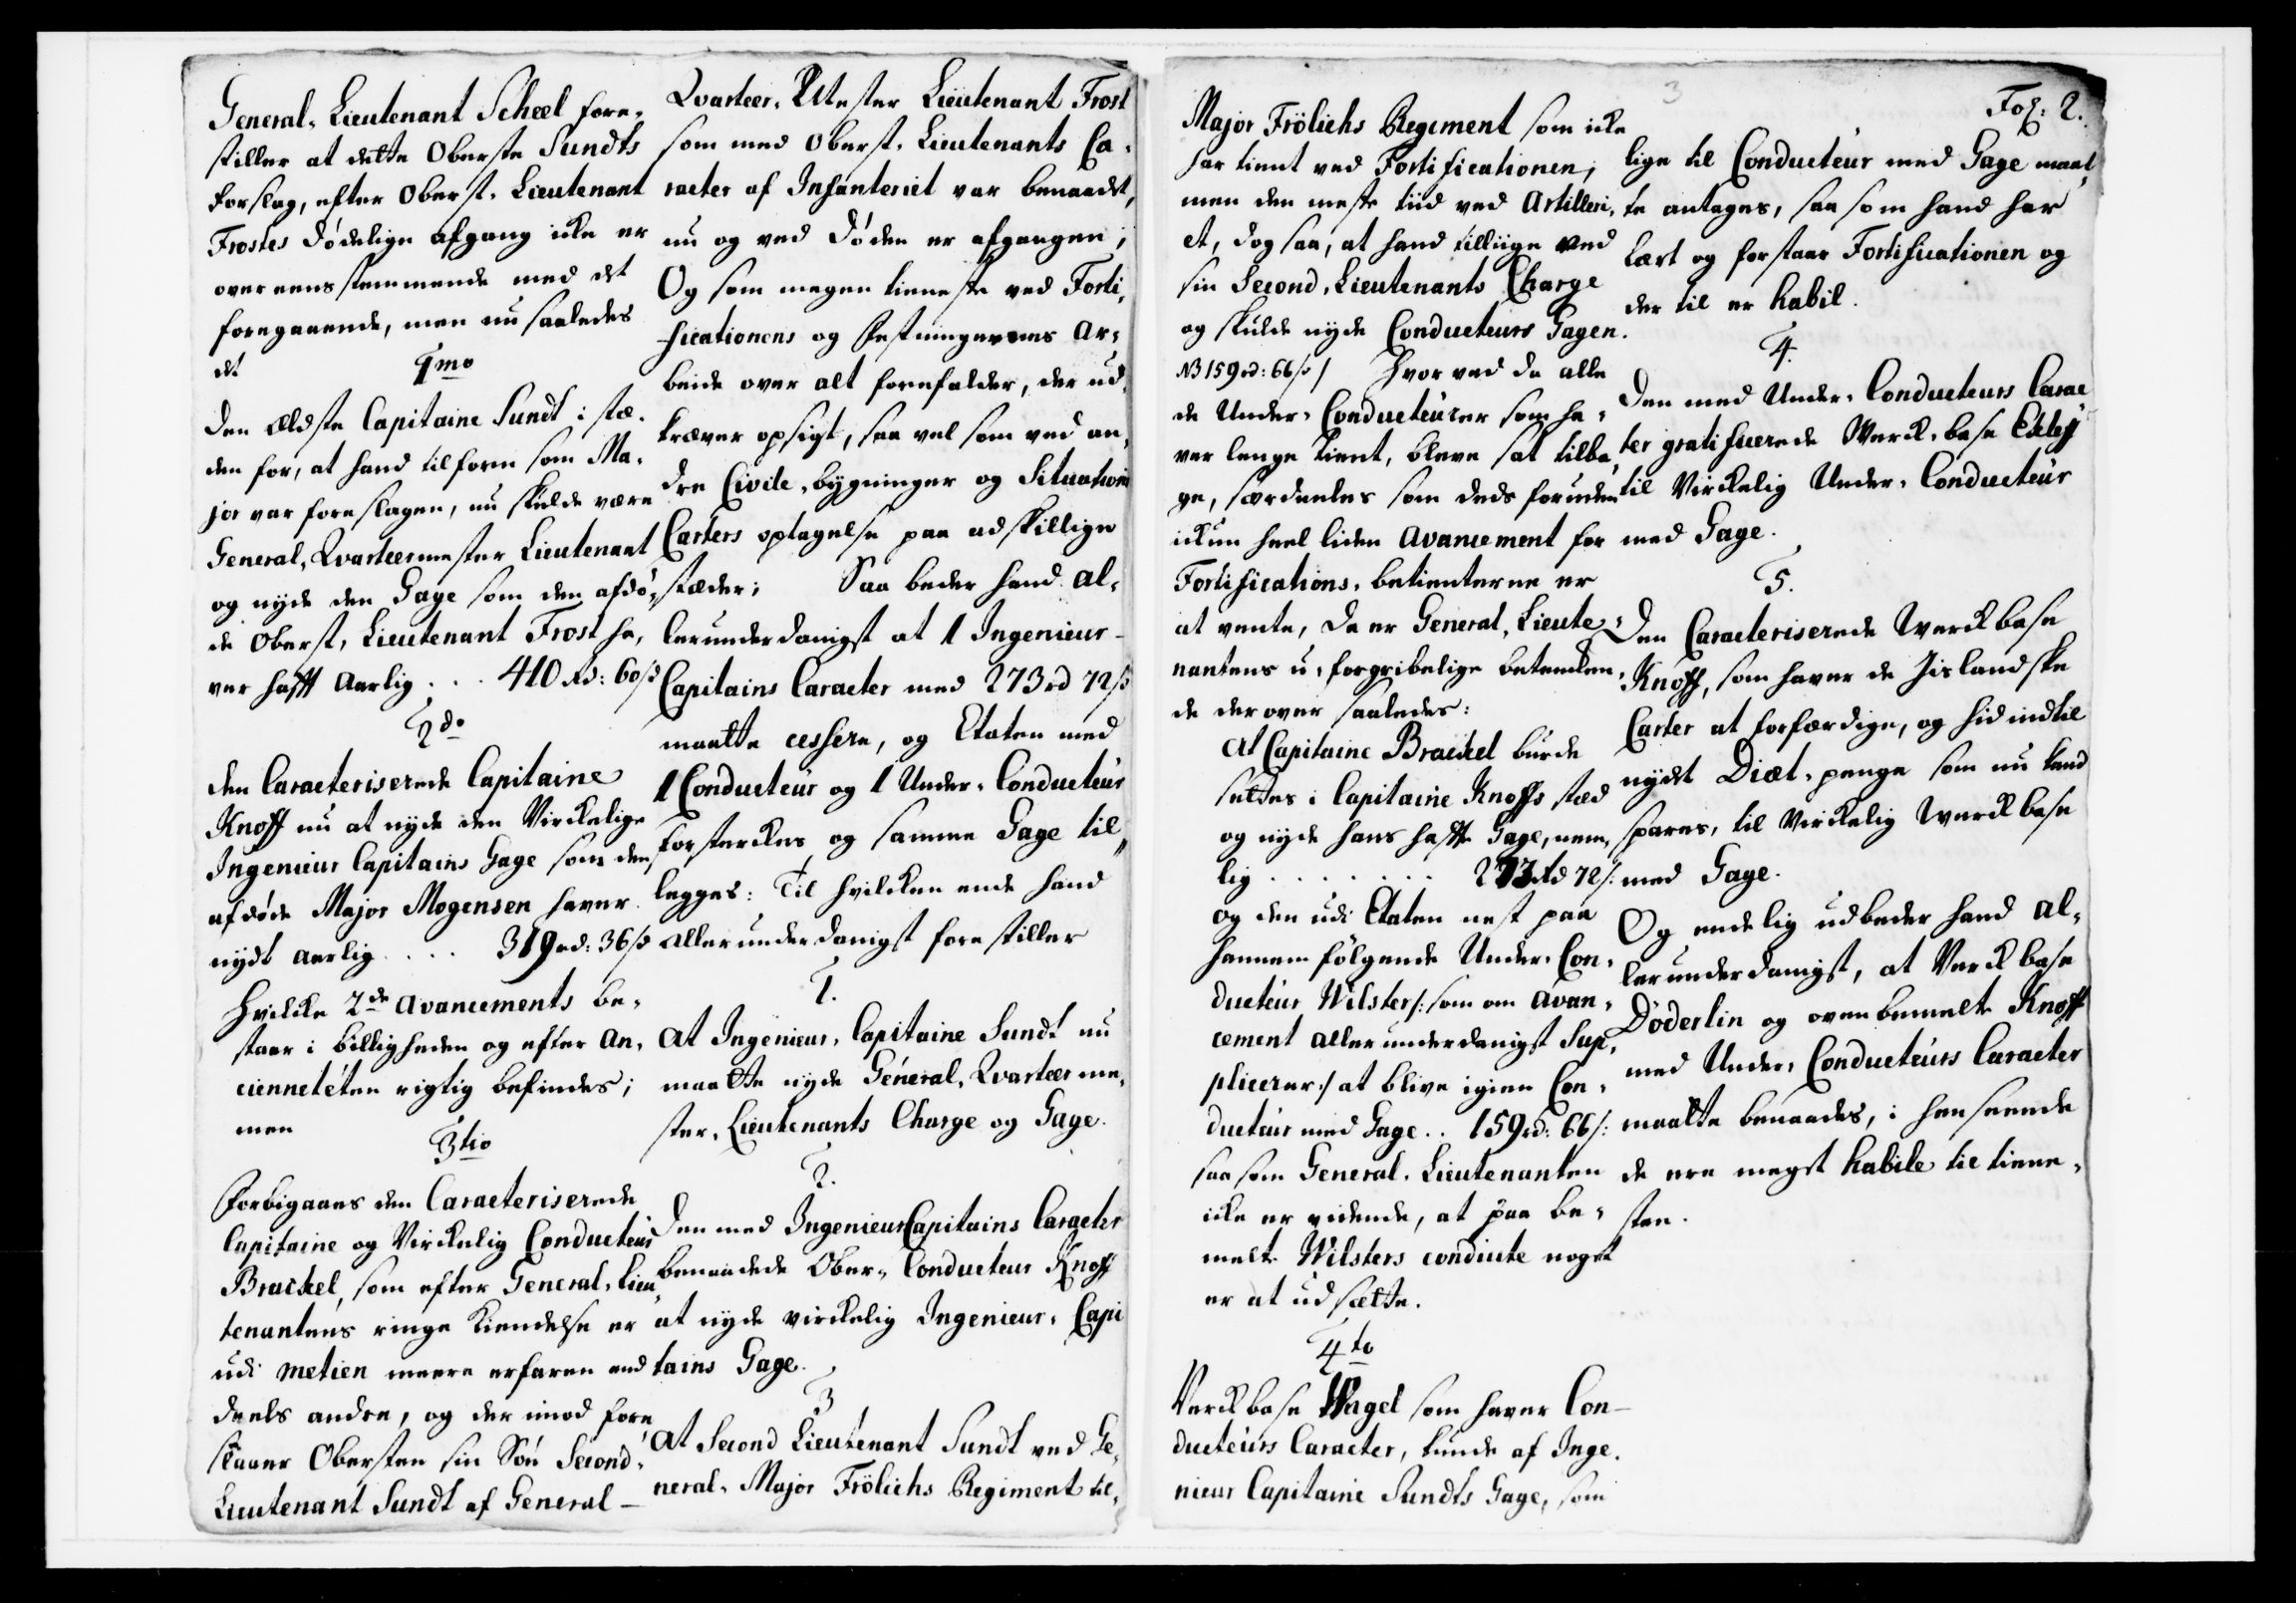 General-Lieutenant Scheel fore-
stiller at dette Oberste Sundts
forslag, efter Oberst-Lieutenant
Frostes dødelige afgang icke er
overeensstemmende med det
foregaaende, men nu saaledes
det
1mo
den Eldste Capitaine Sundt i stæ-
den for, at hand tilforn som Ma-
jor var foreslagen, nu skulde være
General-Qvarteermester Lieutenant
og nyde den Gage som den afdø-
de Oberst-Lieutenant Frost ha-
ver hafft aarlig . . . 410 rd: 60 ß
2do
den Caracteriserede Capitaine
Knoff nu at nyde den Virckelige
Ingenieur Capitains Gage som den
afdøde Major Mogensen haver
nydt aarlig . . . . 319 rd: 36 ß
hvilcke 2de avancements be-
staar i billigheden og efter An-
cienneteten rigtig befindes;
men
3tio
forbigaaes den Caracteriserede
Capitaine og Virckelig Conducteur
Brackel, som efter General-Lieu-
tenantens ringe kiendelse er
udi metien meere erfaren end
deels andre, og der imod fore-
slaaer Obersten sin Søn Second-
Lieutenant Sundt af General-
Qvarteer-Mester Lieutenant Frost
som med Oberst-Lieutenants Ca-
racter af Infanteriet var benaadet,
nu og ved døden er afgangen;
Og som megen tieneste ved Forti-
ficationens og Festningernes Ar-
beide over alt forefalder, der ud-
kræver opsigt, saa vel som ved an-
dre Civile-bygninger og Situations
Carters optagelse paa adskillige
stæder; Saa beder hand al-
lerunderdanigst at 1 Ingenieur-
Capitains Caracter med 273 rd 72 ß
maatte cessere, og Etaten med
1 Conducteur og 1 Under-Conducteur
forsterckes, og samme Gage til-
legges: Til hvilcken ende hand
allerunderdanigst forestiller
1.
At Ingenieur-Capitaine Sundt nu
maatte nyde General-Qvarteerme-
ster-Lieutenants Charge og Gage.
2.
Den med Ingenieur Capitains Caracter
benaadede Ober-Conducteur Knoff
at nyde virckelig Ingenieur-Capi
tains Gage.
3
At Second Lieutenant Sundt ved Ge-
neral-Major Frölichs Regiment til-
3
Major Frölichs Regiment som icke
har tient ved Fortificationen,
men den meste tiid ved Artilleri-
et, dog saa, at hand tillige ved
sin Second-Lieutenants Charge
og skulde nyde Conducteurs Gagen.
NB 159 rd: 66 ß / hvor ved da alle
de Under-Conducteurer som ha-
ver lenge tient, bleve sat tilba-
ge, særdeeles som des foruden
ickun heel liden Avancement for
Fortifications-betienterne er
at vente, da er General-Lieute-
nantens u-forgribelige betencken-
de derover saaledes:
At Capitaine Brackel burde
settes i Capitaine Knoffs stæd
og nyde hans hafte Gage, nem-
lig . . . . . . . . 273 rd 72 ß:
og den udi Etaten nest paa
hannem følgende Under-Con-
ducteur Wilster /: som om Avan-
cement allerunderdanigst Sup-
plicerer :/ at blive igien Con-
ducteur med Gage . . 159 rd: 66 ß:
saasom General-Lieutenanten
icke er vidende, at paa be-
melte Wilsters conduite noget
er at udsætte.
4to
Verckbase Wagel som haver Con-
ducteurs Caracter, kunde af Inge-
nieur Capitaine Sundts Gage, som
Fol: 2.
lige til Conducteur med Gage maat-
te antages, saasom hand har
lært og forstaar Fortificationen og
der til er habil.
4.
Den med Under-Conducteurs Carac
ter gratificerede Werck-base
til Virckelig Under-Conducteur
med Gage.
5.
Den Caracteriserede Werckbase
Knoff, som haver de Jislandske
Carter at forfærdige, og hid indtil
nydt Diæt-penge som nu kand
spares, til Virckelig Werckbase
med Gage.
Og endelig udbeder hand al-
lerunderdanigst, at Verckbase
Döderlin og ovenbemelte Knoff
med Under-Conducteurs Caracter
maatte benaades, i henseende
de ere megst habile til tiene-
sten.